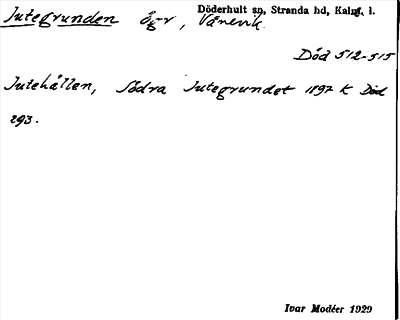 Jutegrunden ög-r, Vånevik.
Döderhult sn, Stranda hd, Kalm. l.
Död 512-515
Jutehällen, Södra Jutegrundet 1892 K Död
293.
Ivar Modéer 1929